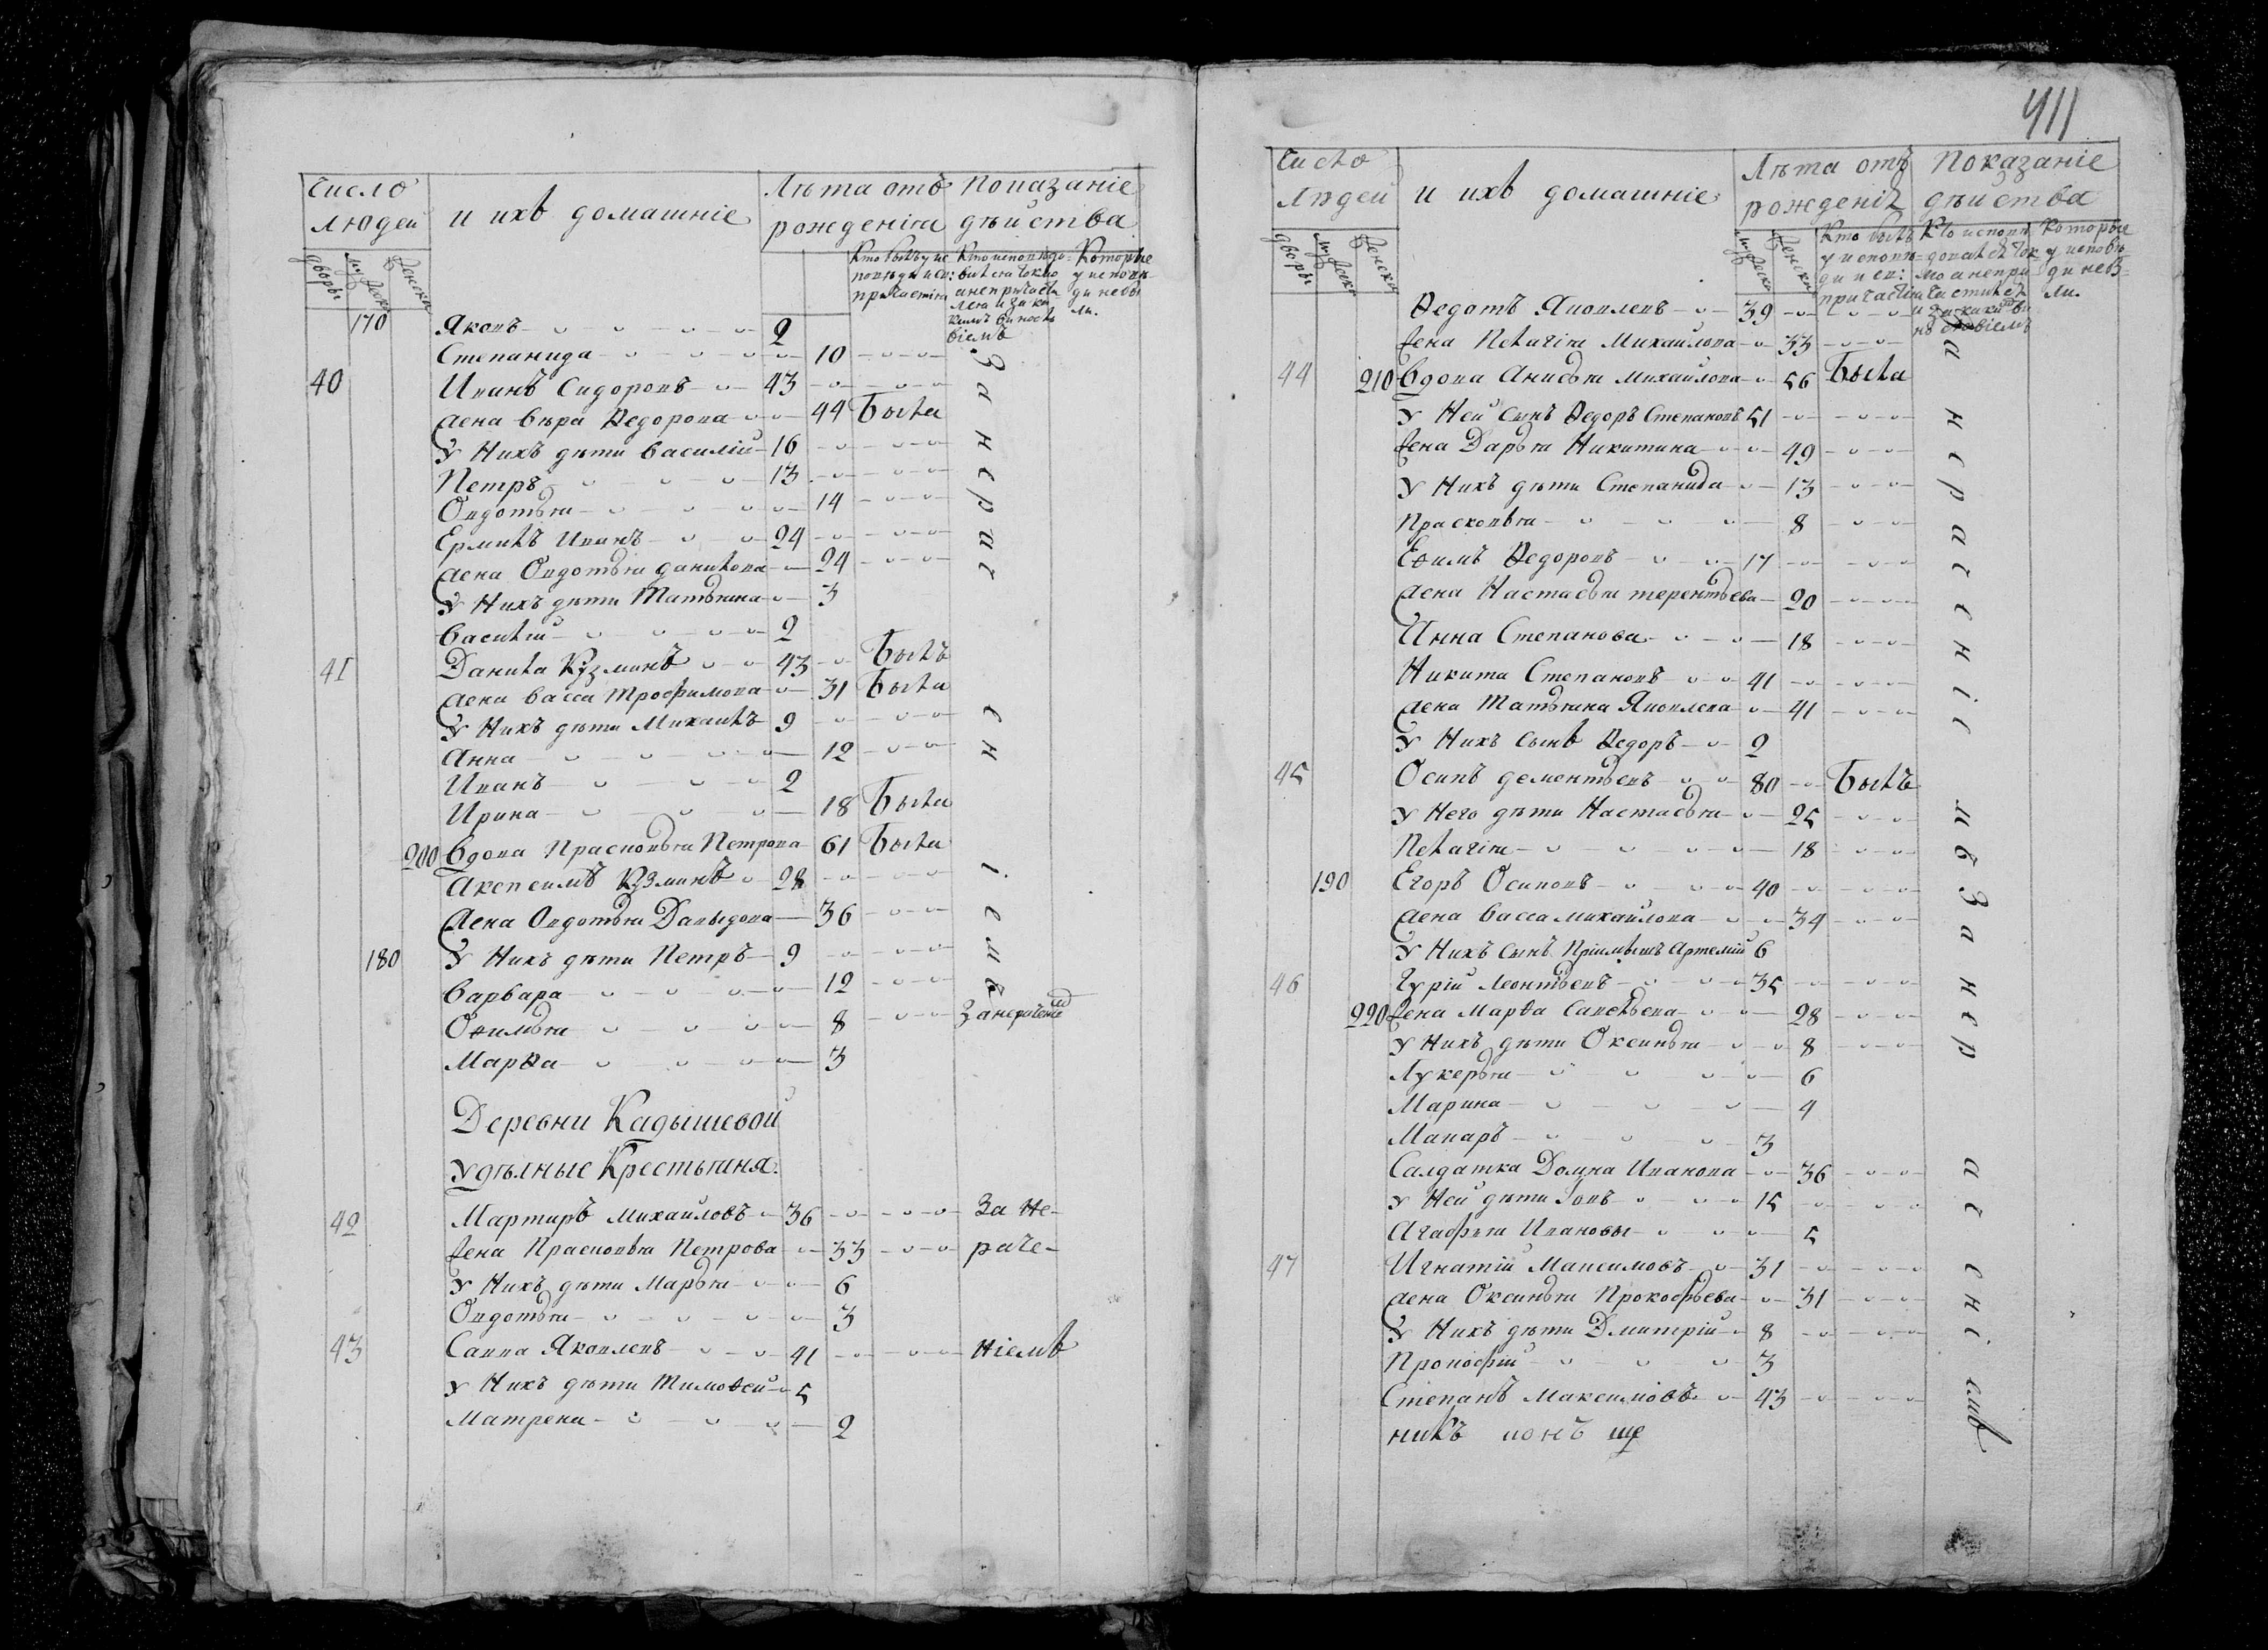 Число людей
и ихъ домашніе
Лѣта отъ рожденія
Показаніе дѣиства
дворы
мужеска
женска
Кто былъ у исповѣди и св: причастія
Которые у исповѣди небыли.
170 Яковъ 2
Степанида 10
40 Иванъ Сидоровъ 43
жена Вѣра Ѳедорова 44 Была
У Нихъ дѣти Василій 16
Петръ 13
Овдотья 14
Ермилъ Иванъ 24
жена Овдотья Данилова 24
У Нихъ дѣти Татьяна 3
Василій 2
41 Данила Кузминъ 43 Былъ
жена Васса Трофимова 31 Была
У Нихъ дѣти Михаилъ 9
Анна 12
Иванъ 2
Ирина 18 Была
200 Вдова Прасковья Петрова 61 Была
Аксенсимъ Кузминъ 28
жена Овдотья Давыдова 36
180 У Нихъ дѣти Петръ 9
Варвара 12
Офимья 8
Марѳа 3
За нерачениемъ
Деревни Кадышевой
Удѣлные Крестьяня.
42 Мартиръ Михаиловъ 36 За не-
жена Прасковья Петрова 33 раче-
У Нихъ дѣти Марья 6
Овдотья 3
43 Савва Яковлевъ 41 ніемъ
У Нихъ дѣти Тимоѳей 5
Матрена 2
411
Число Людей
и ихъ домашніе
Лѣта отъ рожденія
Показаніе дѣиства
дворы
мужеска
женска
Кто былъ у исповѣди и св: причастія
Которые у исповѣди небыли.
Ѳедотъ Яковлевъ 39
жена Пелагія Михаилова 33
44 210 Вдова Анисья Михаилова 56 Была
У Ней сынъ Ѳедоръ Степановъ 51
жена Дарья Никитина 49
У Нихъ дѣти Степанида 13
Прасковья 8
Еѳимъ Ѳедоровъ 17
жена Настасья Терентьева 20
Анна Степанова 18
Никита Степановъ 41
жена Татьяна Яковлева 41
У Нихъ сынъ Ѳедоръ 2
45 Осипъ Дементьевъ 80 Былъ
У Него дѣти Настасья 25
Пелагія 18
190 Егоръ Осиповъ 40
жена Васса Михаилова 34
У Нихъ сынъ Пріимышъ Артемій 6
46 Гурій Леонтьевъ 35
220 жена Марѳа Савельева 28
У Нихъ дѣти Оксинья 8
Лукерья 6
Марина 4
Макаръ 3
Салдатка Домна Иванова 36
У Ней дѣти Іовъ 15
Агафья Ивановы 5
47 Игнатій Максимовъ 31
жена Оксинья Прокофьева 31
У Нихъ дѣти Дмитрій 8
Прокофій 3
Степанъ Максимовъ 43
За нераченіемъ За нераченіемъ